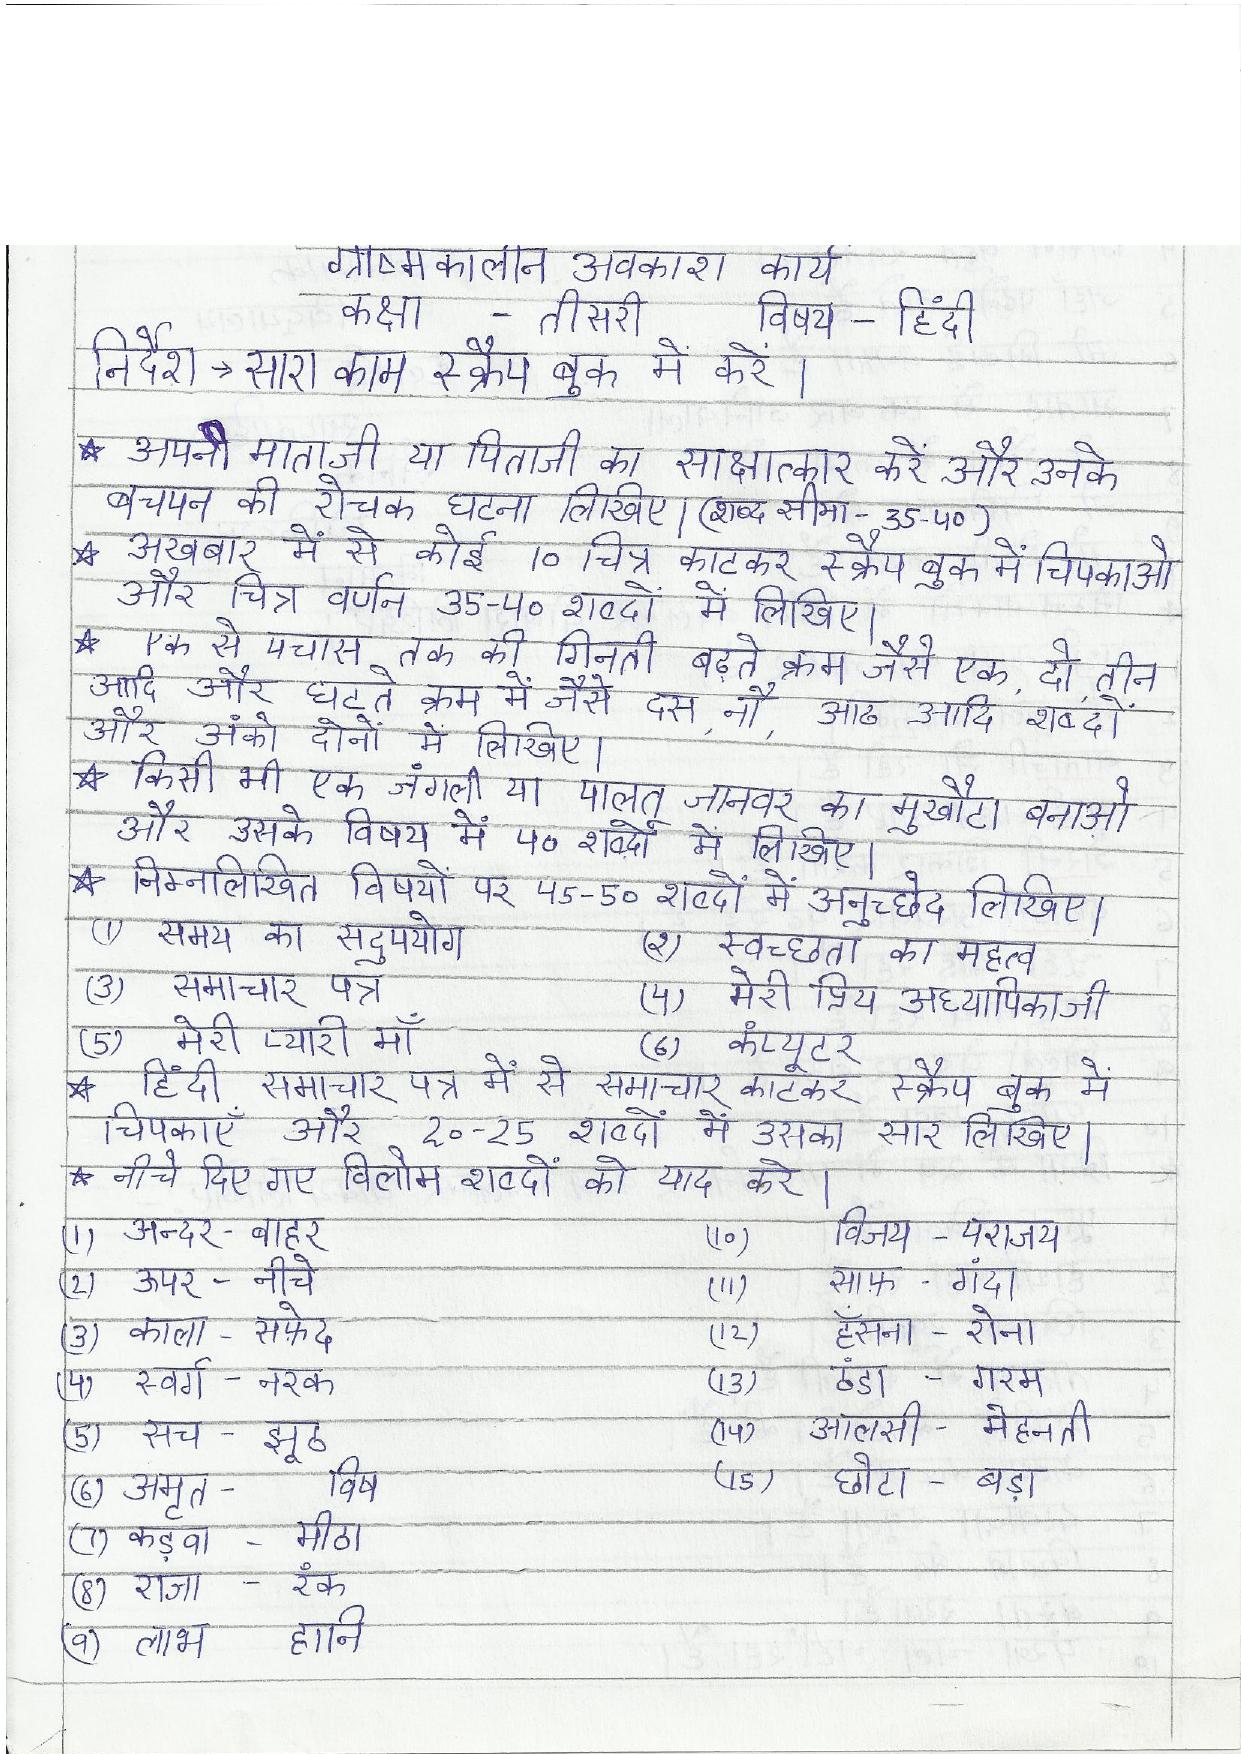 ग्रीष्मकालीन अवकाश कार्य
कक्षा - तीसरी विषय - हिंदी
निर्देश → सारा काम स्क्रैप बुक में करें।
★ अपनी माताजी या पिताजी का साक्षात्कार करें और उनके
बचपन की रोचक घटना लिखिए। (शब्द सीमा - 35-40)
★ अखबार में से कोई 10 चित्र काटकर स्क्रैप बुक में चिपकाओ
और चित्र वर्णन 35-40 शब्दों में लिखिए।
★ एक से पचास तक की गिनती बढ़ते क्रम जैसे एक, दो, तीन
आदि और घटते क्रम में जैसे दस, नौ, आठ आदि शब्दों
और अंको दोनों में लिखिए।
★ किसी भी एक जंगली या पालतू जानवर का मुखौटा बनाओ
और उसके विषय में 40 शब्दों में लिखिए।
★ निम्नलिखित विषयों पर 45-50 शब्दों में अनुच्छेद लिखिए।
(1) समय का सदुपयोग (2) स्वच्छता का महत्व
(3) समाचार पत्र (4) मेरी प्रिय अध्यापिकाजी
(5) मेरी प्यारी माँ (6) कंप्यूटर
★ हिंदी समाचार पत्र में से समाचार काटकर स्क्रैप बुक में
चिपकाएँ और 20-25 शब्दों में उसका सार लिखिए।
★ नीचे दिए गए विलोम शब्दों को याद करे।
(1) अन्दर - बाहर (10) विजय - पराजय
(2) ऊपर - नीचे (11) साफ़ - गंदा
(3) काला - सफ़ेद (12) हँसना - रोना
(4) स्वर्ग - नरक (13) ठंडा - गरम
(5) सच - झूठ (14) आलसी - मेहनती
(6) अमृत - विष (15) छोटा - बड़ा
(7) कड़वा - मीठा
(8) राजा - रंक
(9) लाभ हानि